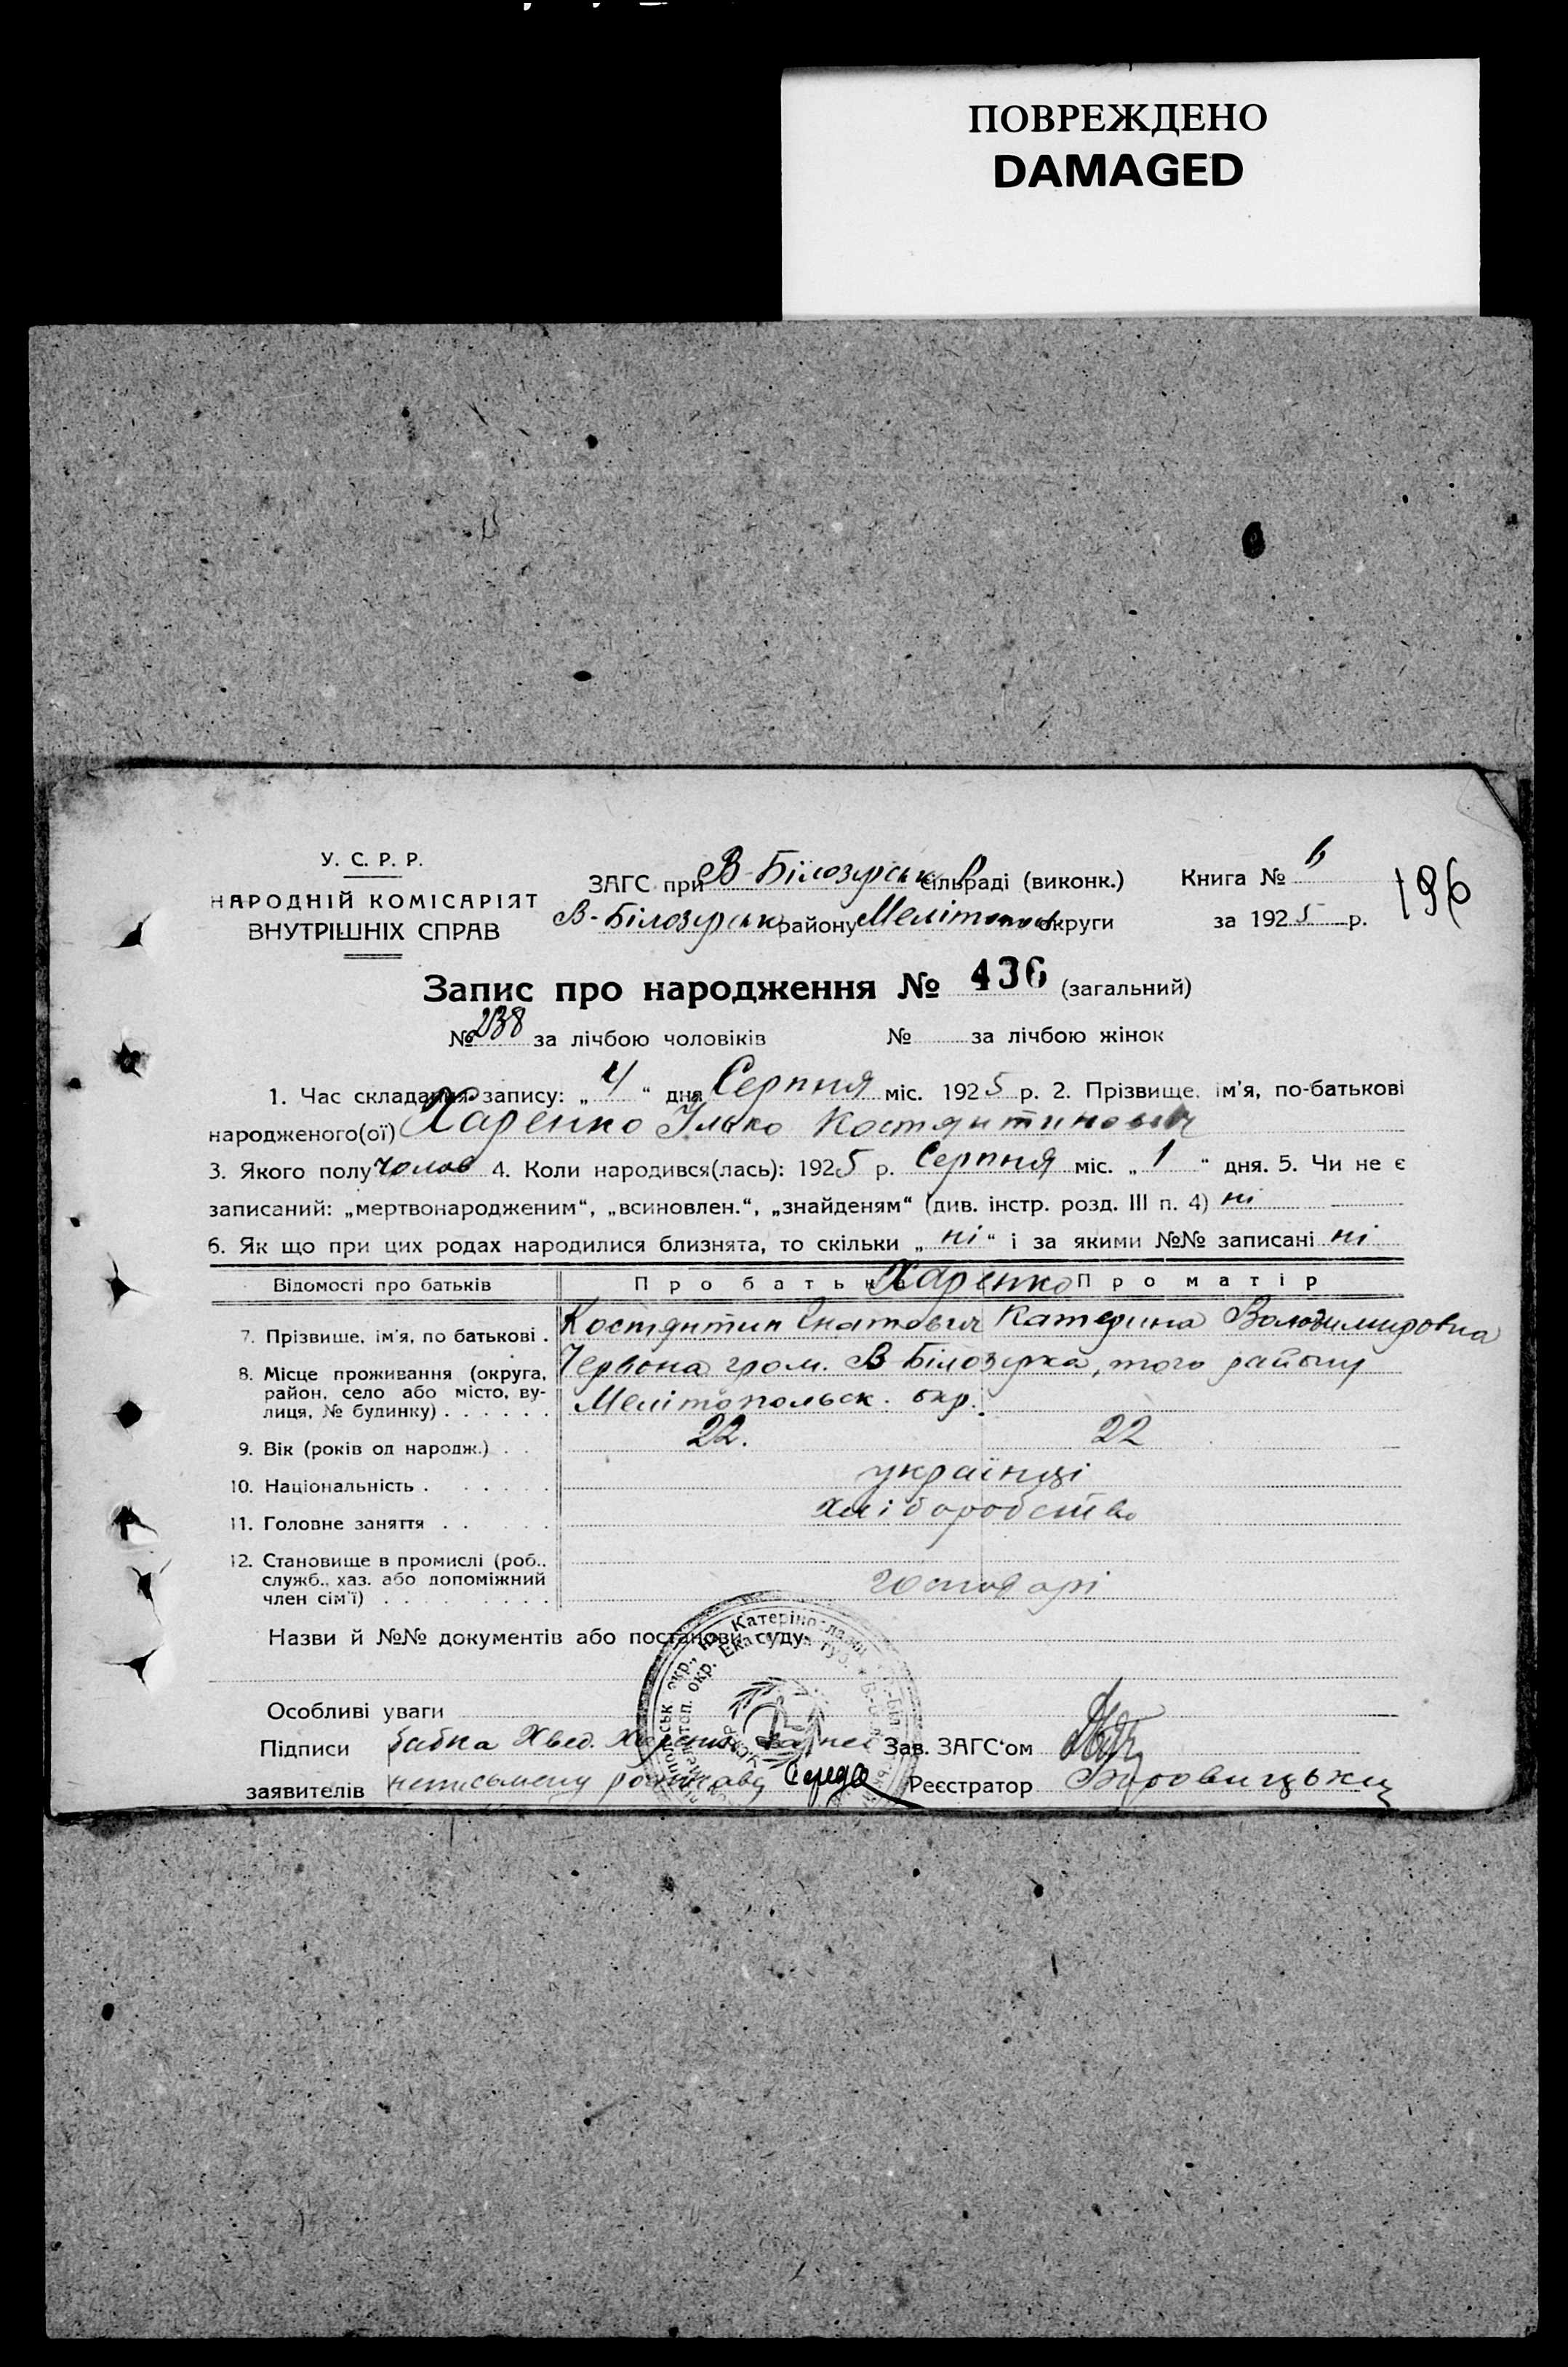 ПОВРЕЖДЕНО
DAMAGED
У. С. Р. Р.
НАРОДНІЙ КОМІСАРІЯТ
ВНУТРІШНІХ СПРАВ
ЗАГС при В-Білозірськ сільраді (виконк.)
В-Білозірськ району Мелітопол округи
Книга № 6
за 1925 р.
196
Запис про народження № 436 (загальний)
№ 238 за лічбою чоловіків № за лічбою жінок
1. Час складання запису: „4“ дня Серпня міс. 1925 р. 2. Прізвище, ім'я, по-батькові
народженого(ої) Харенко Ілько Костянтинович
3. Якого полу чолов 4. Коли народився(лась): 1925 р. Серпня міс. „1“ дня. 5. Чи не є
записаний: „мертвонародженим“, „всиновлен.“, „знайденям“ (див. інстр. розд. III п. 4) ні
6. Як що при цих родах народилися близнята, то скільки „ні“ і за якими №№ записані ні
Відомості про батьків Про батька Харенко Про матір
7. Прізвище, ім'я, по батькові . Костянтин Гнатович Катерина Володимировна
8. Місце проживання (округа, Червона гром. В Білозірка, того району
район, село або місто, ву- Мелітопольськ. окр.
лиця, № будинку) . . . . . .
9. Вік (років од народж.) . . 22. 22
10. Національність . . . . . . українці
11. Головне заняття . . . . . хліборобство
12. Становище в промислі (роб.,
служб., хаз. або допоміжний господарі
член сім'ї) . . . . . . . . .
Назви й №№ документів або постанови суду
Особливі уваги
Підписи бабка Хвед. Харенко за неї Зав. ЗАГС'ом
заявителів неписьмену розписавсь Середа Реєстратор